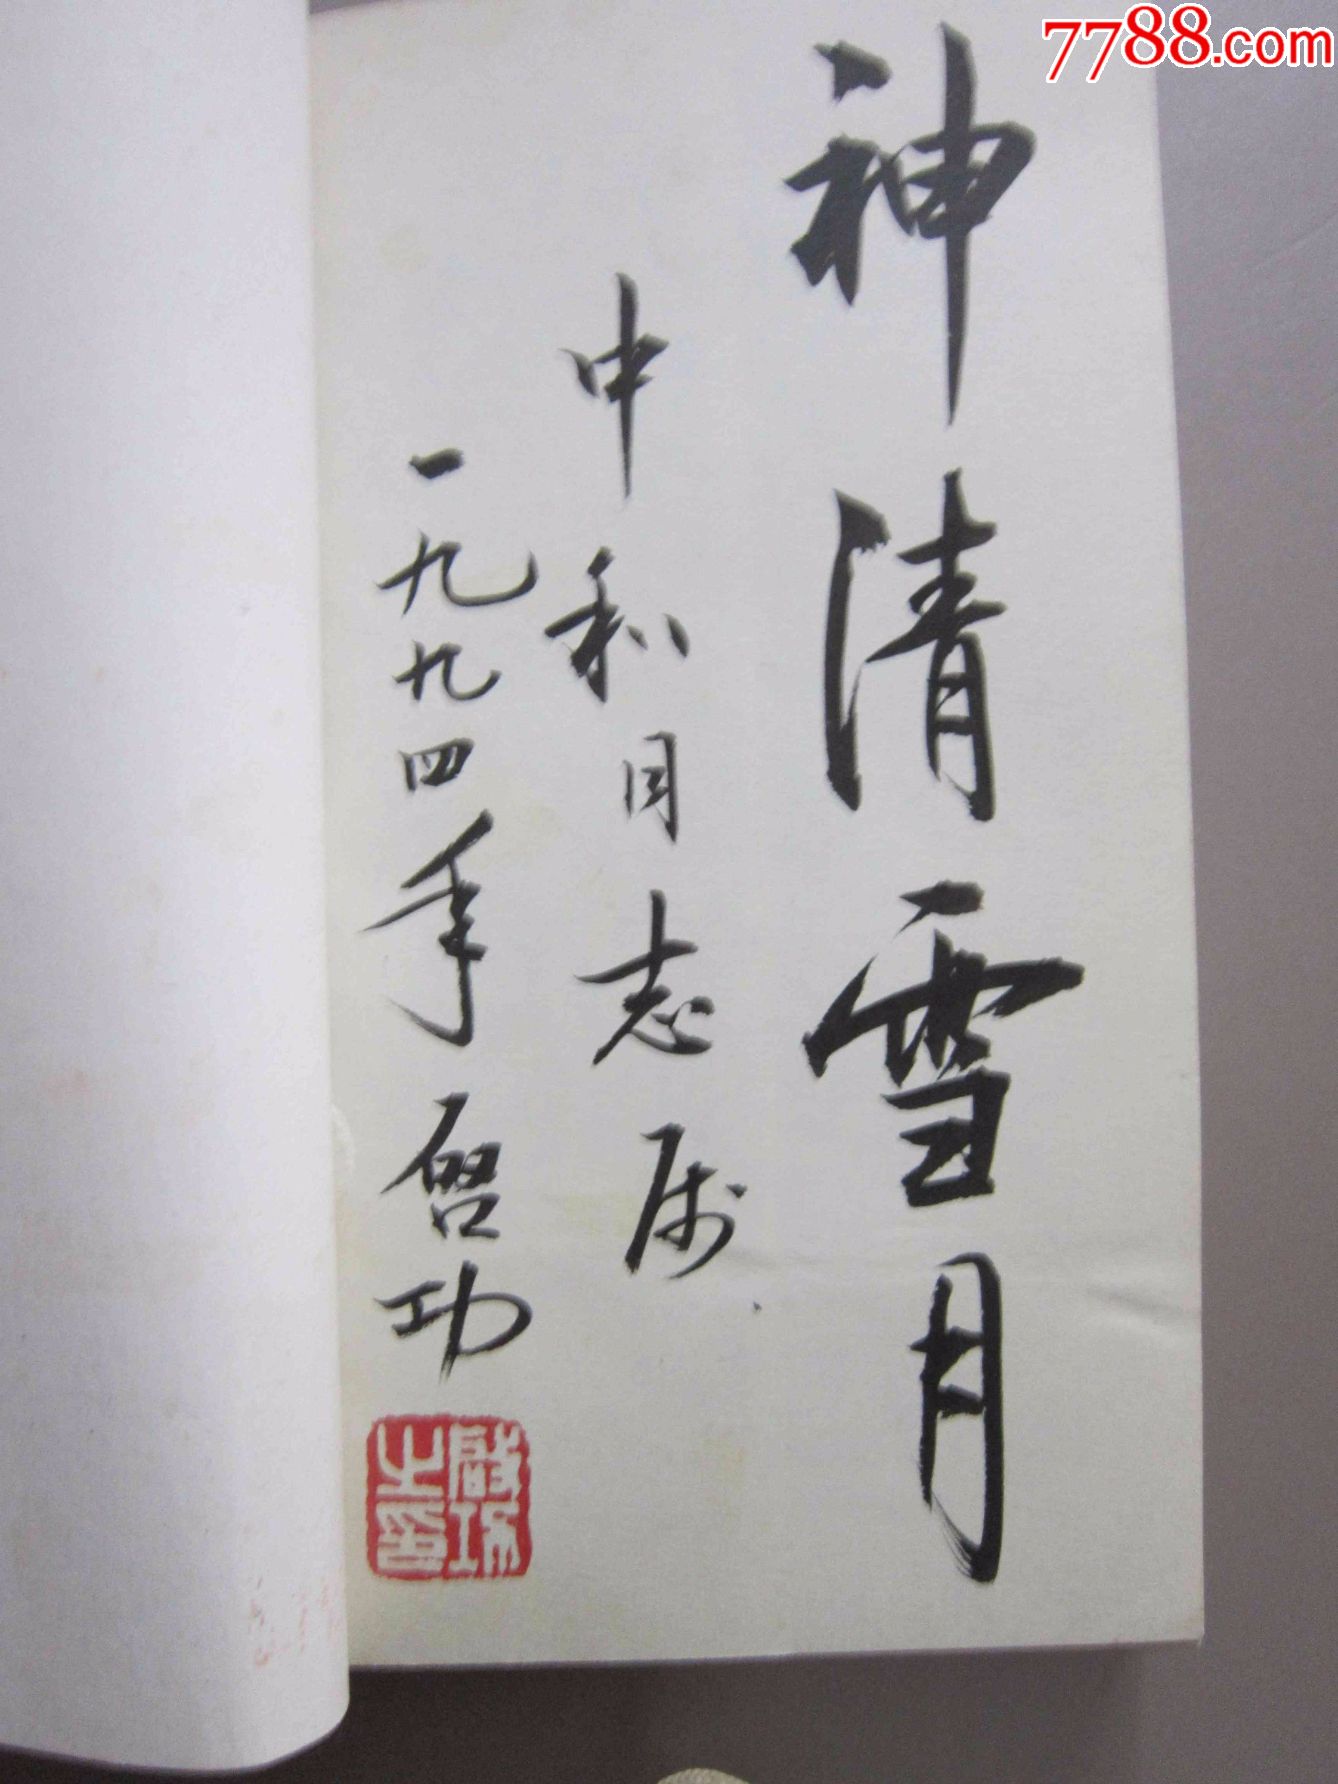 7788.com
神清雪月
中和同志属
一九九四年 启功
启功之印